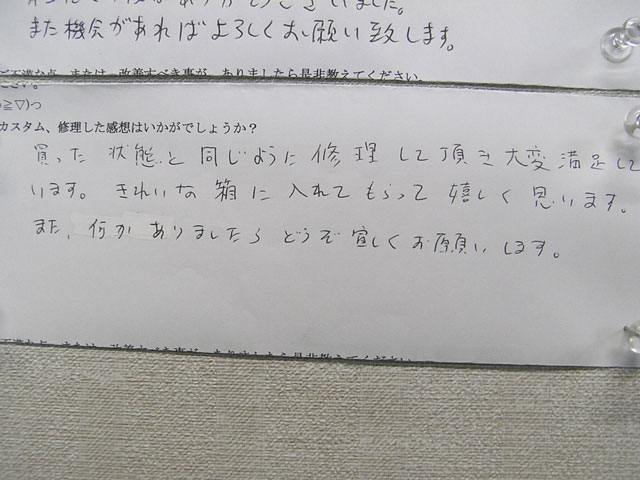 ありがとうございました。
また機会があればよろしくお願い致します。
ご不満な点、または、改善すべき事が、ありましたら是非教えてください。
ださい。
≧▽)っ
カスタム、修理した感想はいかがでしょうか？
買った状態と同じように修理して頂き大変満足して
います。きれいな箱に入れてもらって嬉しく思います。
また、何かありましたらどうぞ宜しくお願いします。